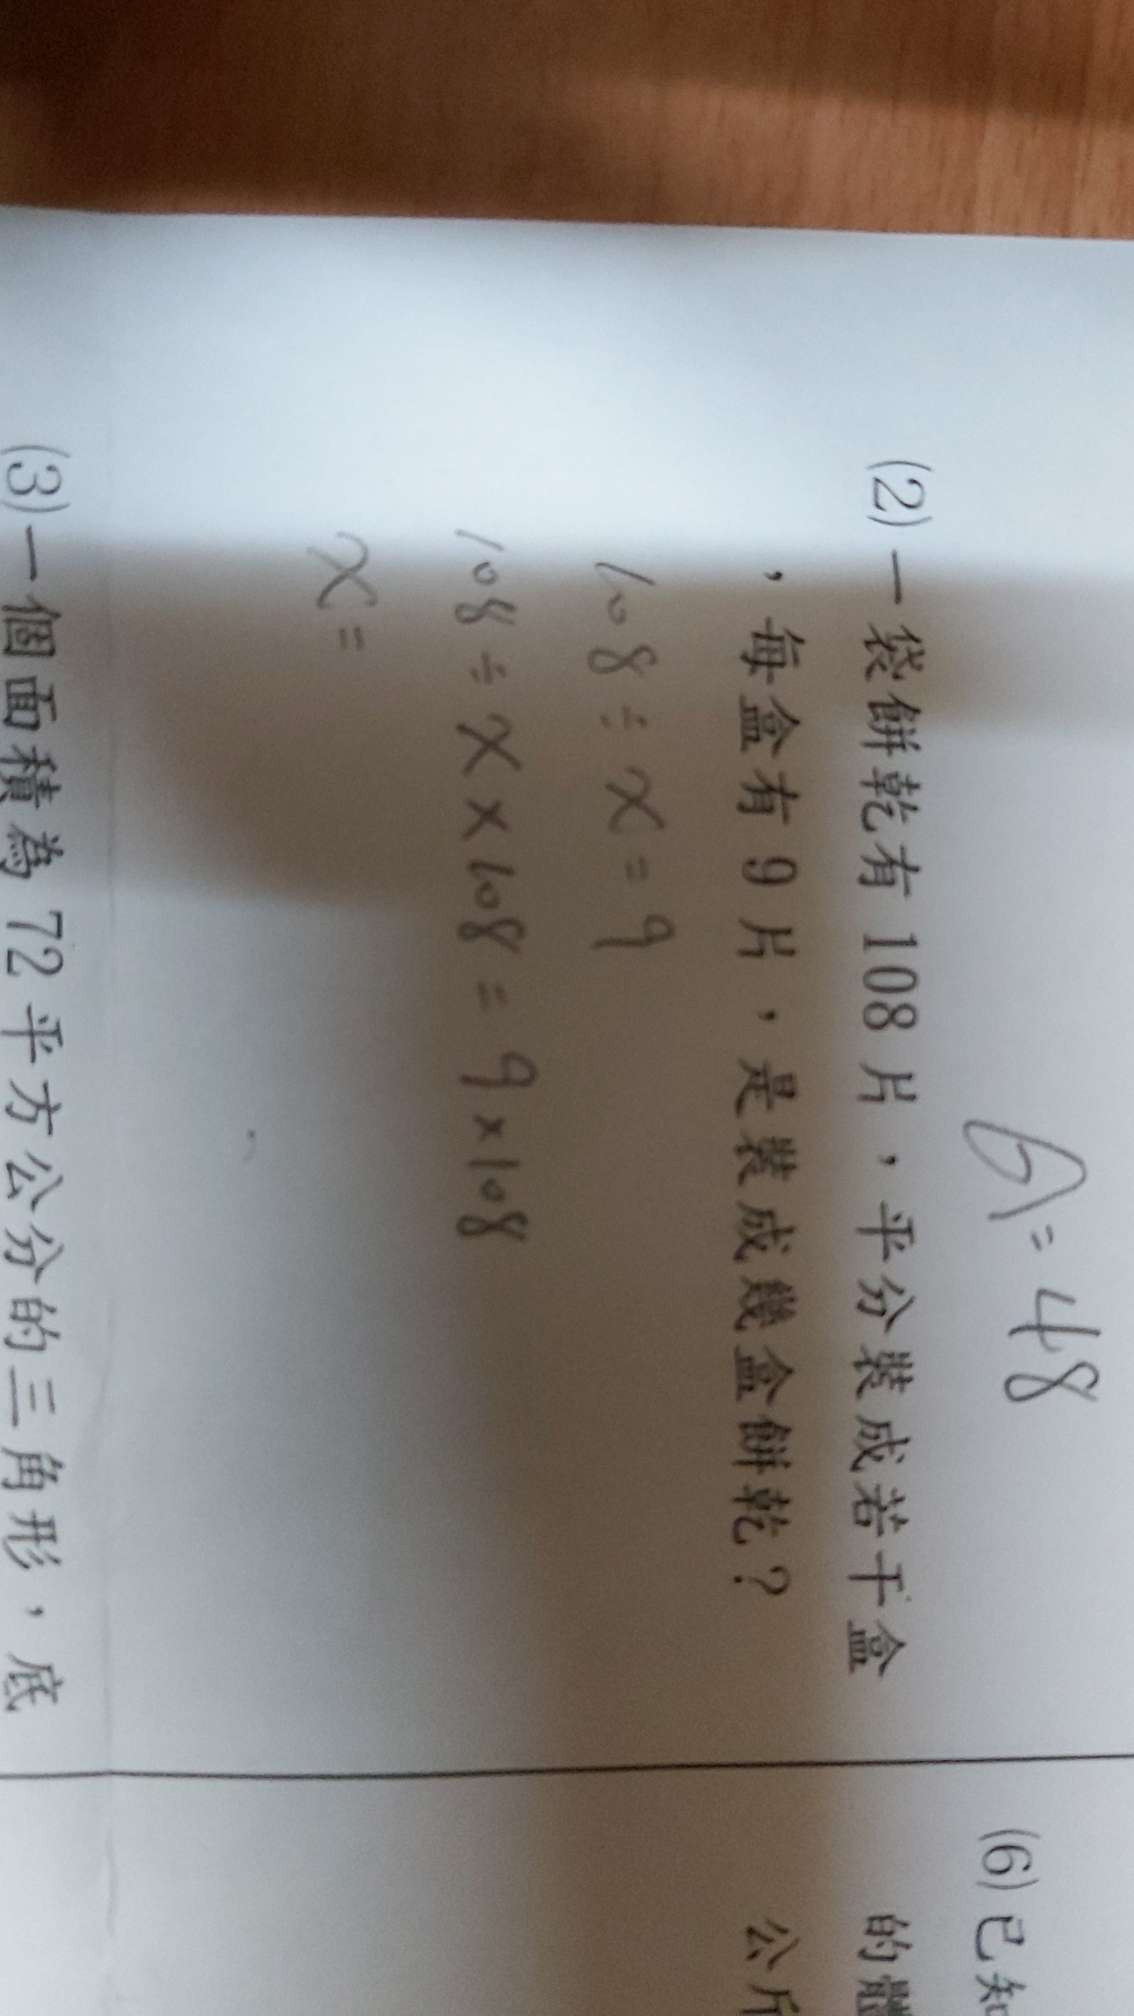 A=48
(2)一袋餅乾有108片,平分裝成若干盒
,每盒有9片,是裝成幾盒餅乾?
108÷x=9
108÷x×108=9×108
x=
(3)一個面積為72平方公分的三角形,底
(6)已知
的體
公斤